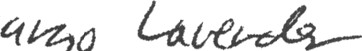 urso Lavender